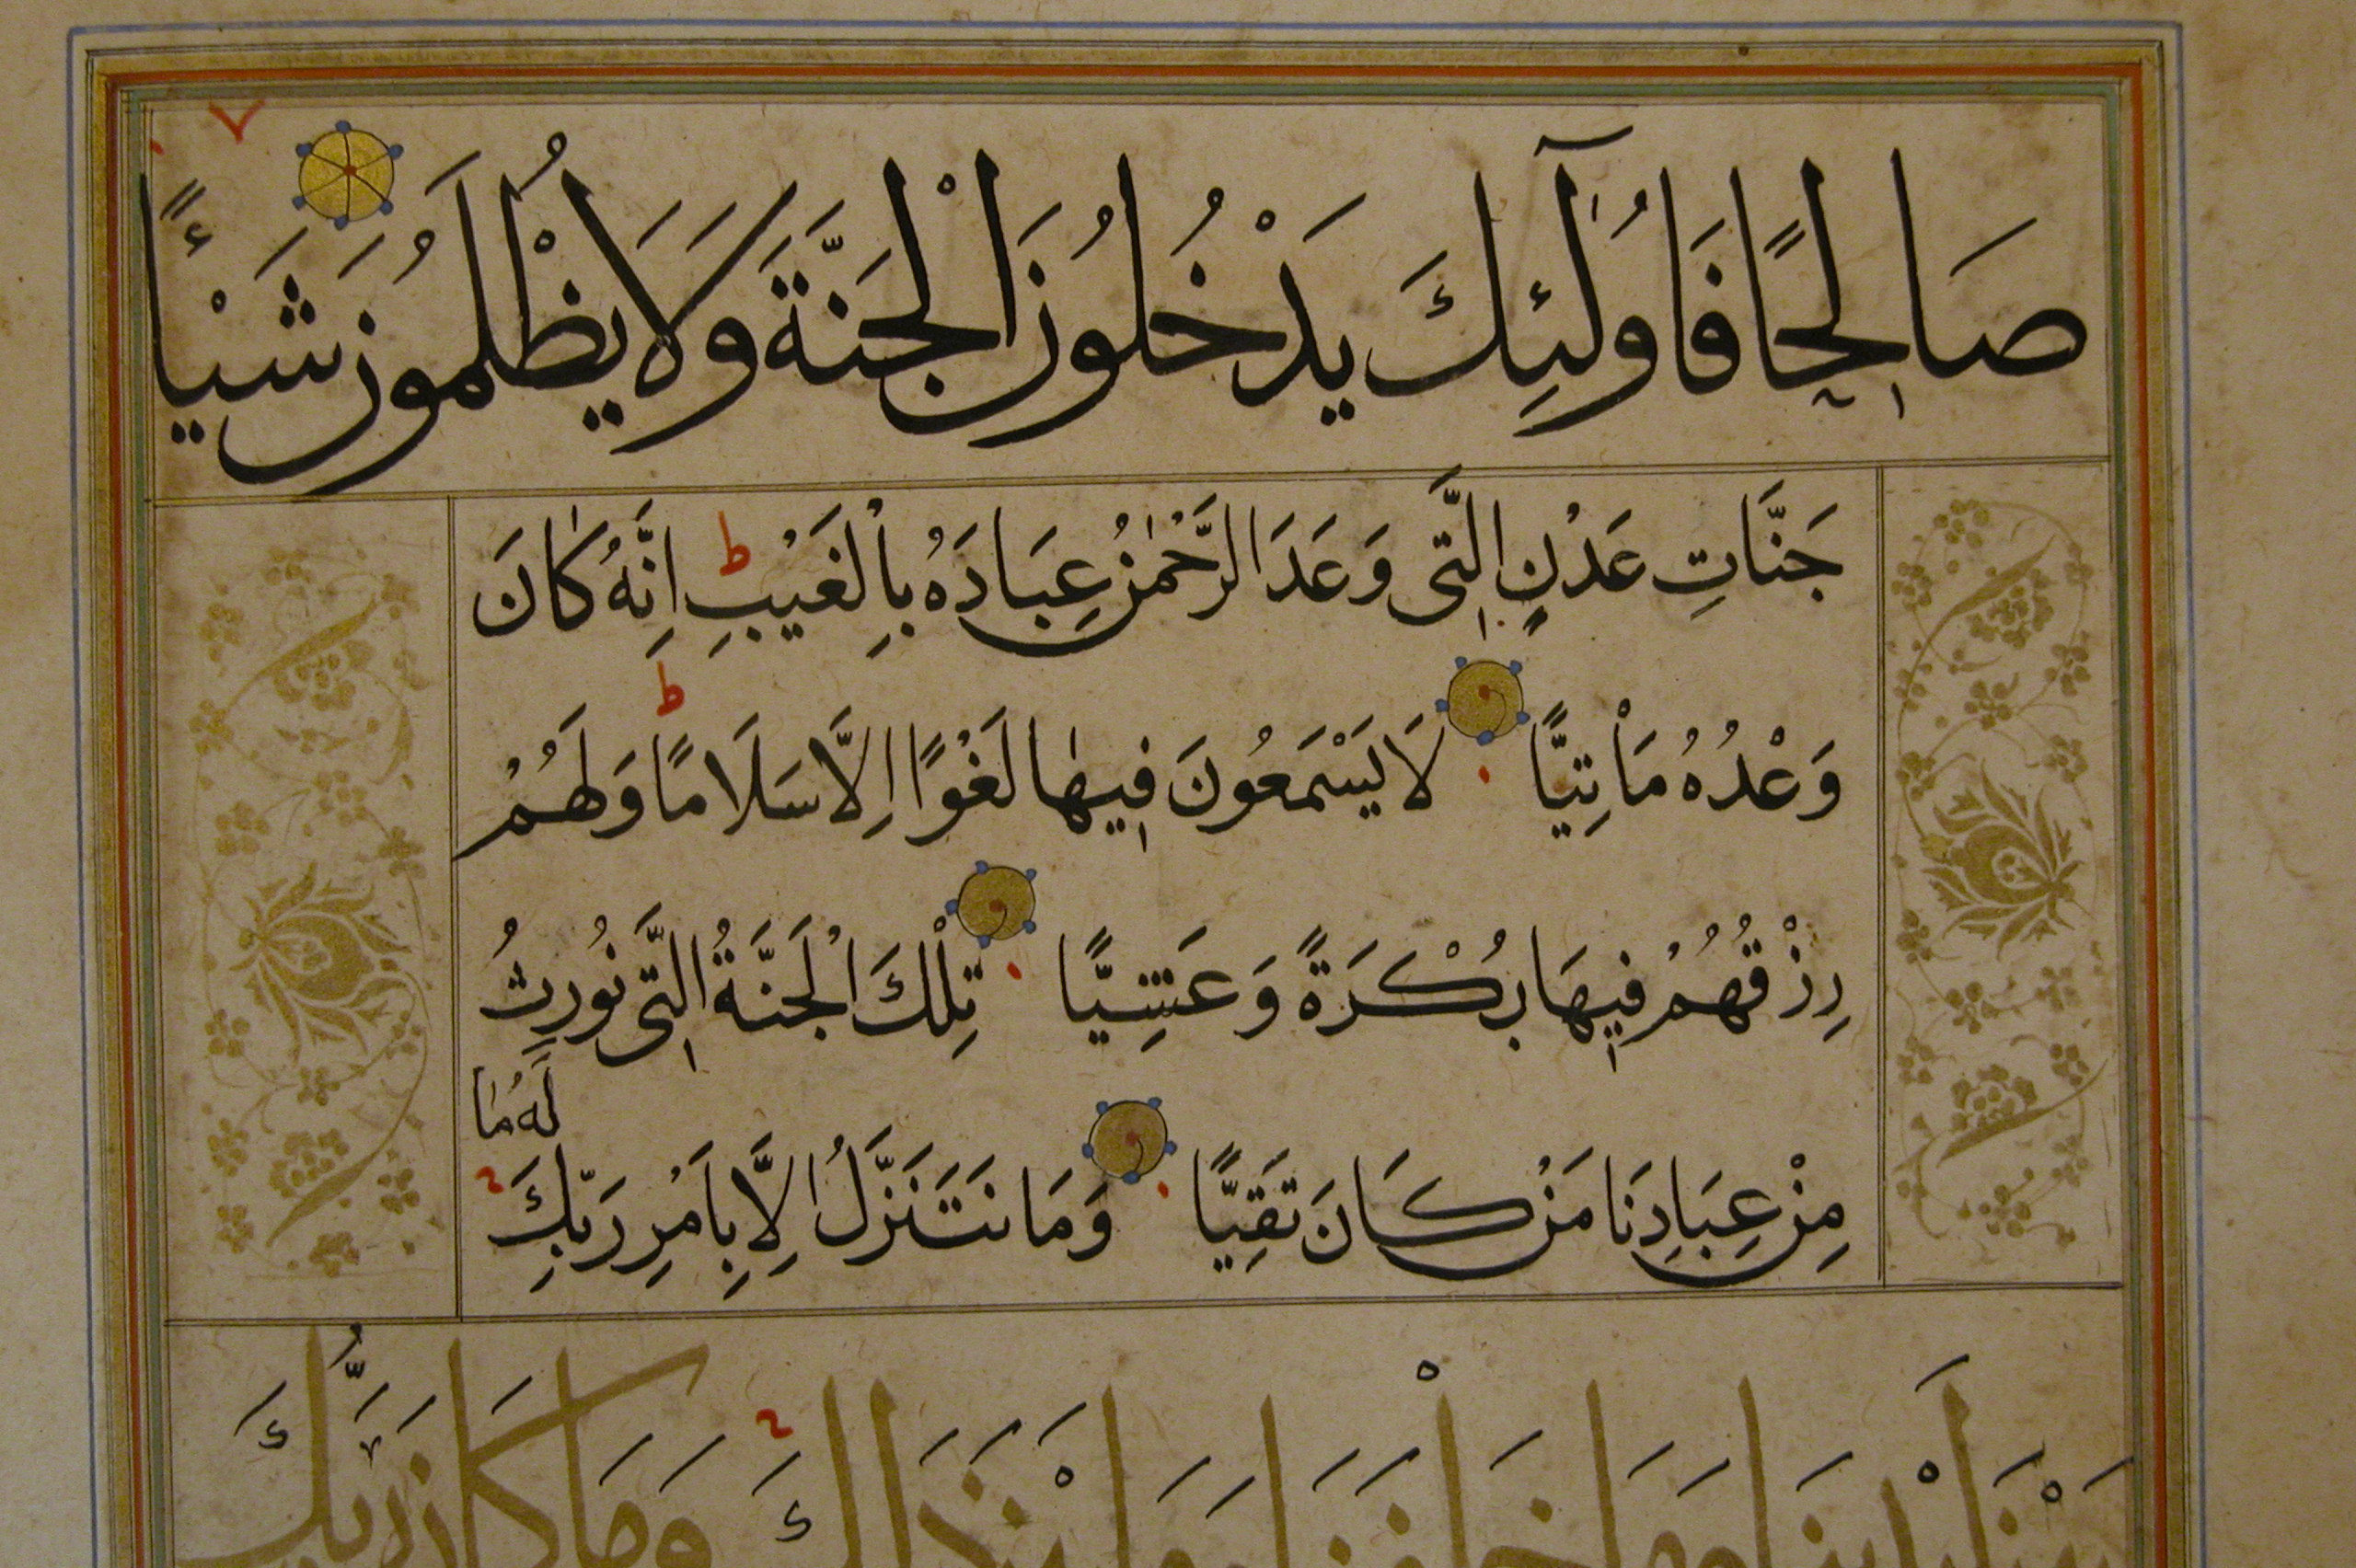 صَالِحًا فَاُولٰٓئِكَ يَدْخُلُونَ الْجَنَّةَ وَلَا يُظْلَمُونَ شَيْـًٔا
جَنَّاتِ عَدْنٍ الَّتِى وَعَدَ الرَّحْمٰنُ عِبَادَهُ بِالْغَيْبِ ط اِنَّهُ كَانَ
وَعْدُهُ مَأْتِيًّا لَا يَسْمَعُونَ فِيهَا لَغْوًا اِلَّا سَلَامًا ط وَلَهُمْ
رِزْقُهُمْ فِيهَا بُكْرَةً وَعَشِيًّا تِلْكَ الْجَنَّةُ الَّتِى نُورِثُ
مِنْ عِبَادِنَا مَنْ كَانَ تَقِيًّا وَمَا نَتَنَزَّلُ اِلَّا بِاَمْرِ رَبِّكَ لَهُ مَا
بَيْنَ اَيْدِينَا وَمَا خَلْفَنَا وَمَا بَيْنَ ذٰلِكَ وَمَا كَانَ رَبُّكَ